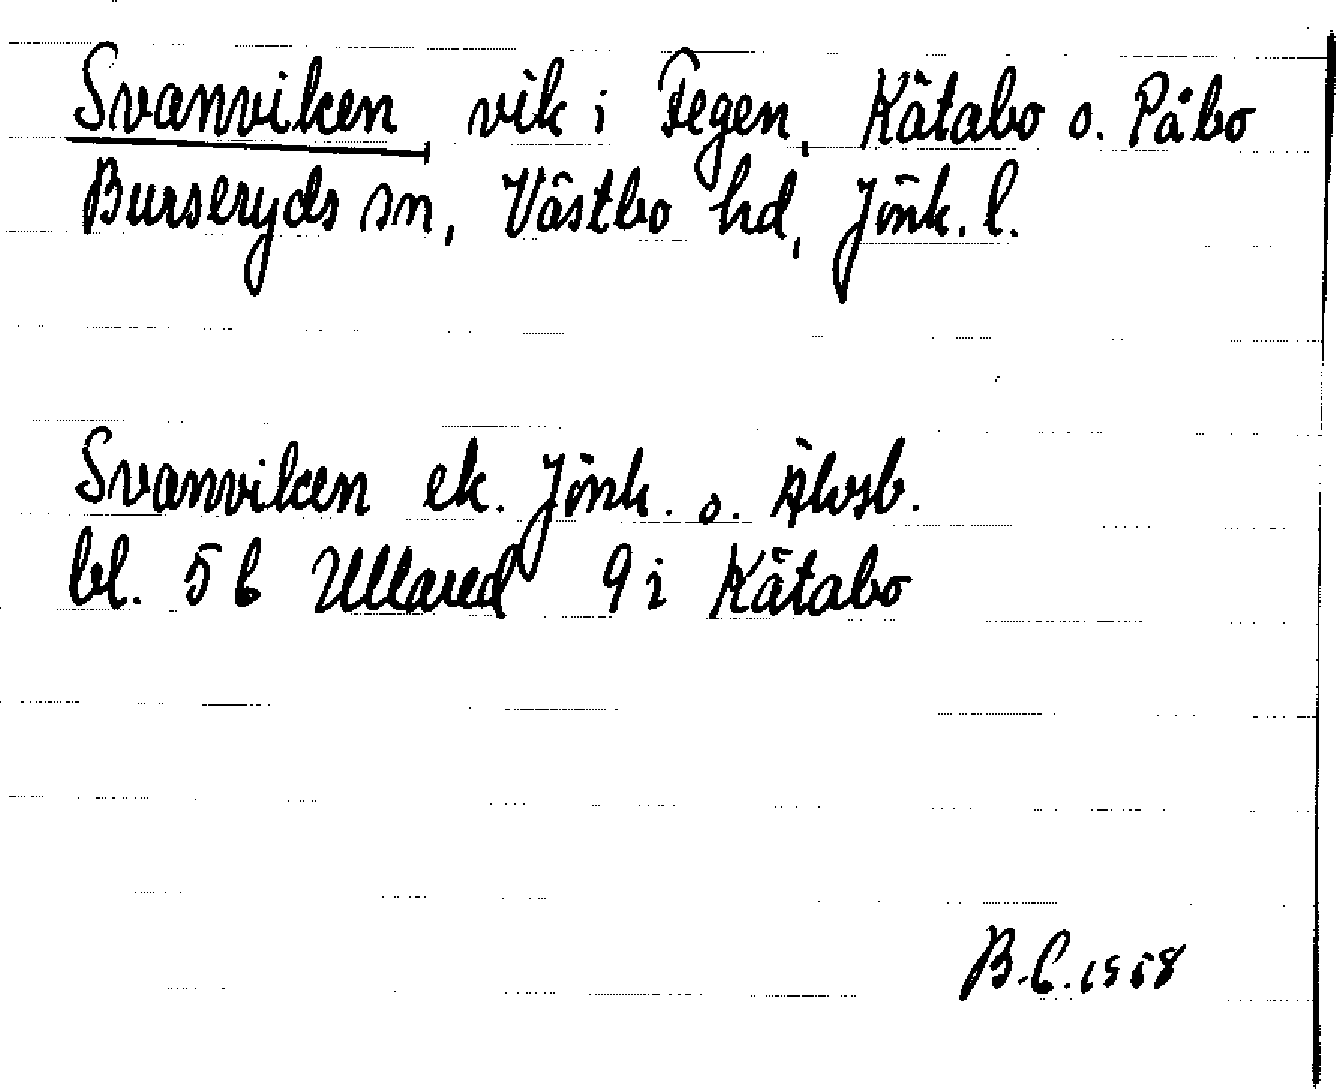 Svanviken, vik i Fegen, Kätabo o. Påbo
Burseryds sn, Västbo hd, Jönk. l.
Svanviken ek. Jönk. o. Älvsb.
bl. 5 b Ullared 9 i Kätabo
B.C. 1958